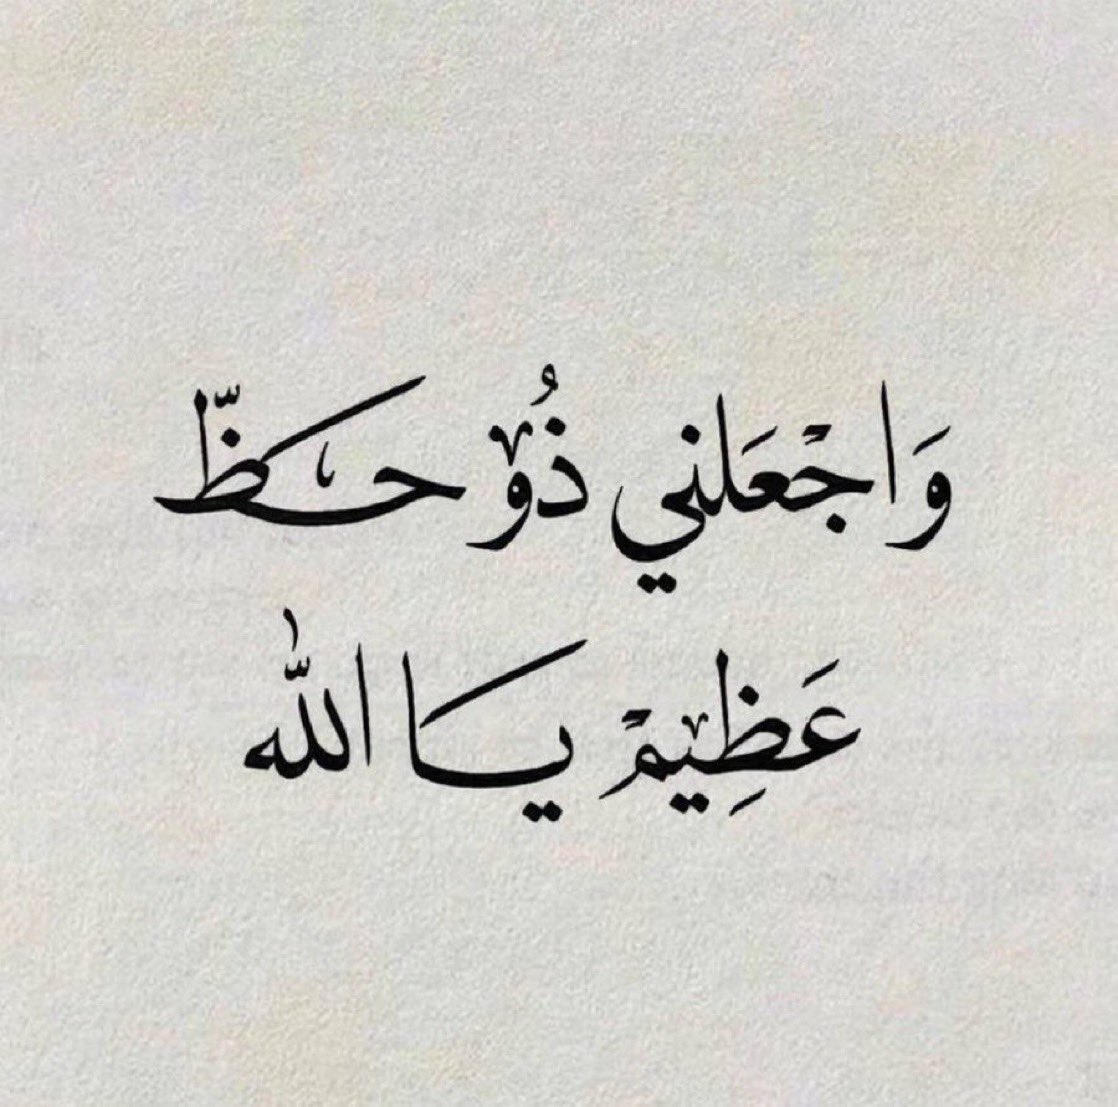 وَاجْعَلني ذُوْ حَكظّ
عَظِيمْ يا اللّٰه